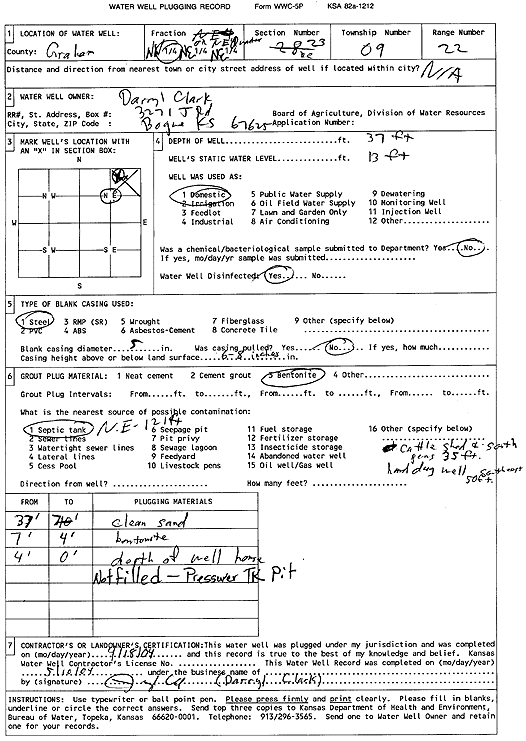 WATER WELL PLUGGING RECORD Form WWC-5P KSA 82a-1212
1 LOCATION OF WATER WELL: Fraction Section Number Township Number Range Number
County: Graham NW 1/4 NE 1/4 NE 1/4 23 09 22
Distance and direction from nearest town or city street address of well if located within city? N/A
2 WATER WELL OWNER: Darryl Clark
RR#, St. Address, Box #: 3271 J Rd Board of Agriculture, Division of Water Resources
City, State, ZIP Code : Bogue KS 67625 Application Number:
3 MARK WELL'S LOCATION WITH AN "X" IN SECTION BOX:
N
N W N E
W E
S W S E
S
4 DEPTH OF WELL..................ft. 37 ft
WELL'S STATIC WATER LEVEL.........ft. 13 ft
WELL WAS USED AS:
1 Domestic 5 Public Water Supply 9 Dewatering
2 Irrigation 6 Oil Field Water Supply 10 Monitoring Well
3 Feedlot 7 Lawn and Garden Only 11 Injection Well
4 Industrial 8 Air Conditioning 12 Other...............
Was a chemical/bacteriological sample submitted to Department? Yes...No...
If yes, mo/day/yr sample was submitted................
Water Well Disinfected? Yes... No......
5 TYPE OF BLANK CASING USED:
1 Steel 3 RMP (SR) 5 Wrought 7 Fiberglass 9 Other (specify below)
2 PVC 4 ABS 6 Asbestos-Cement 8 Concrete Tile .........................
Blank casing diameter...5...in. Was casing pulled? Yes.... No... If yes, how much........
Casing height above or below land surface...6-8 inches...in.
6 GROUT PLUG MATERIAL: 1 Neat cement 2 Cement grout 3 Bentonite 4 Other..............
Grout Plug Intervals: From.....ft. to .....ft., From.... to .....ft., From..... to......ft.
What is the nearest source of possible contamination:
1 Septic tank N.E-121ft 6 Seepage pit 11 Fuel storage 16 Other (specify below)
2 Sewer lines 7 Pit privy 12 Fertilizer storage
3 Watertight sewer lines 8 Sewage lagoon 13 Insecticide storage Cattle shed & south
4 Lateral lines 9 Feedyard 14 Abandoned water well pens 35 ft.
5 Cess Pool 10 Livestock pens 15 Oil well/Gas well hand dug well southeast 50 ft.
Direction from well? .................. How many feet? .................
FROM TO PLUGGING MATERIALS
37' clean sand
7' 4' bentonite
4' 0' depth of well house
Not filled - Pressure TK pit
7 CONTRACTOR'S OR LANDOWNER'S CERTIFICATION: This water well was plugged under my jurisdiction and was completed
on (mo/day/year)..4/18/04...... and this record is true to the best of my knowledge and belief. Kansas
Water Well Contractor's License No. ............... This Water Well Record was completed on (mo/day/year)
...5/12/04...... under the business name of ...............................
by (signature) (Darryl Clark)
INSTRUCTIONS: Use typewriter or ball point pen. Please press firmly and print clearly. Please fill in blanks,
underline or circle the correct answers. Send top three copies to Kansas Department of Health and Environment,
Bureau of Water, Topeka, Kansas 66620-0001. Telephone: 913/296-3565. Send one to Water Well Owner and retain
one for your records.